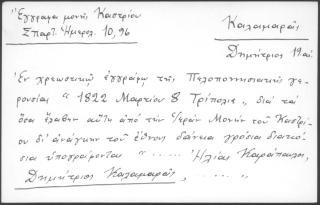 Ἔγγραφα μονῆς Καστρίου
Σπαρτ. Ἡμερολ. 10, 96
Καλαμαρᾶς,
Δημήτριος 19 αἰ.
Ἐν χρεωστικῷ ἐγγράφῳ τῆς Πελοποννησιακῆς γε-
ρουσίας " 1822 Μαρτίου 8 Τρίπολις " διὰ τὰ
ὅσα ἔλαβεν αὕτη ἀπὸ τὴν Ἱερὰν Μονὴν τοῦ Καστρί-
ου δι' ἀνάγκην τοῦ ἔθνους δάνεια γρόσια διακό-
σια ὑπογράφονται " ...... Ἠλίας Καράπαυλος,
Δημήτριος Καλαμαρᾶς, ...... "